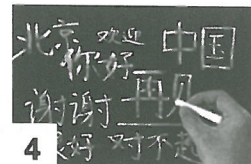 北京 欢迎 中国
你好
谢谢 再见
好 对不起
4